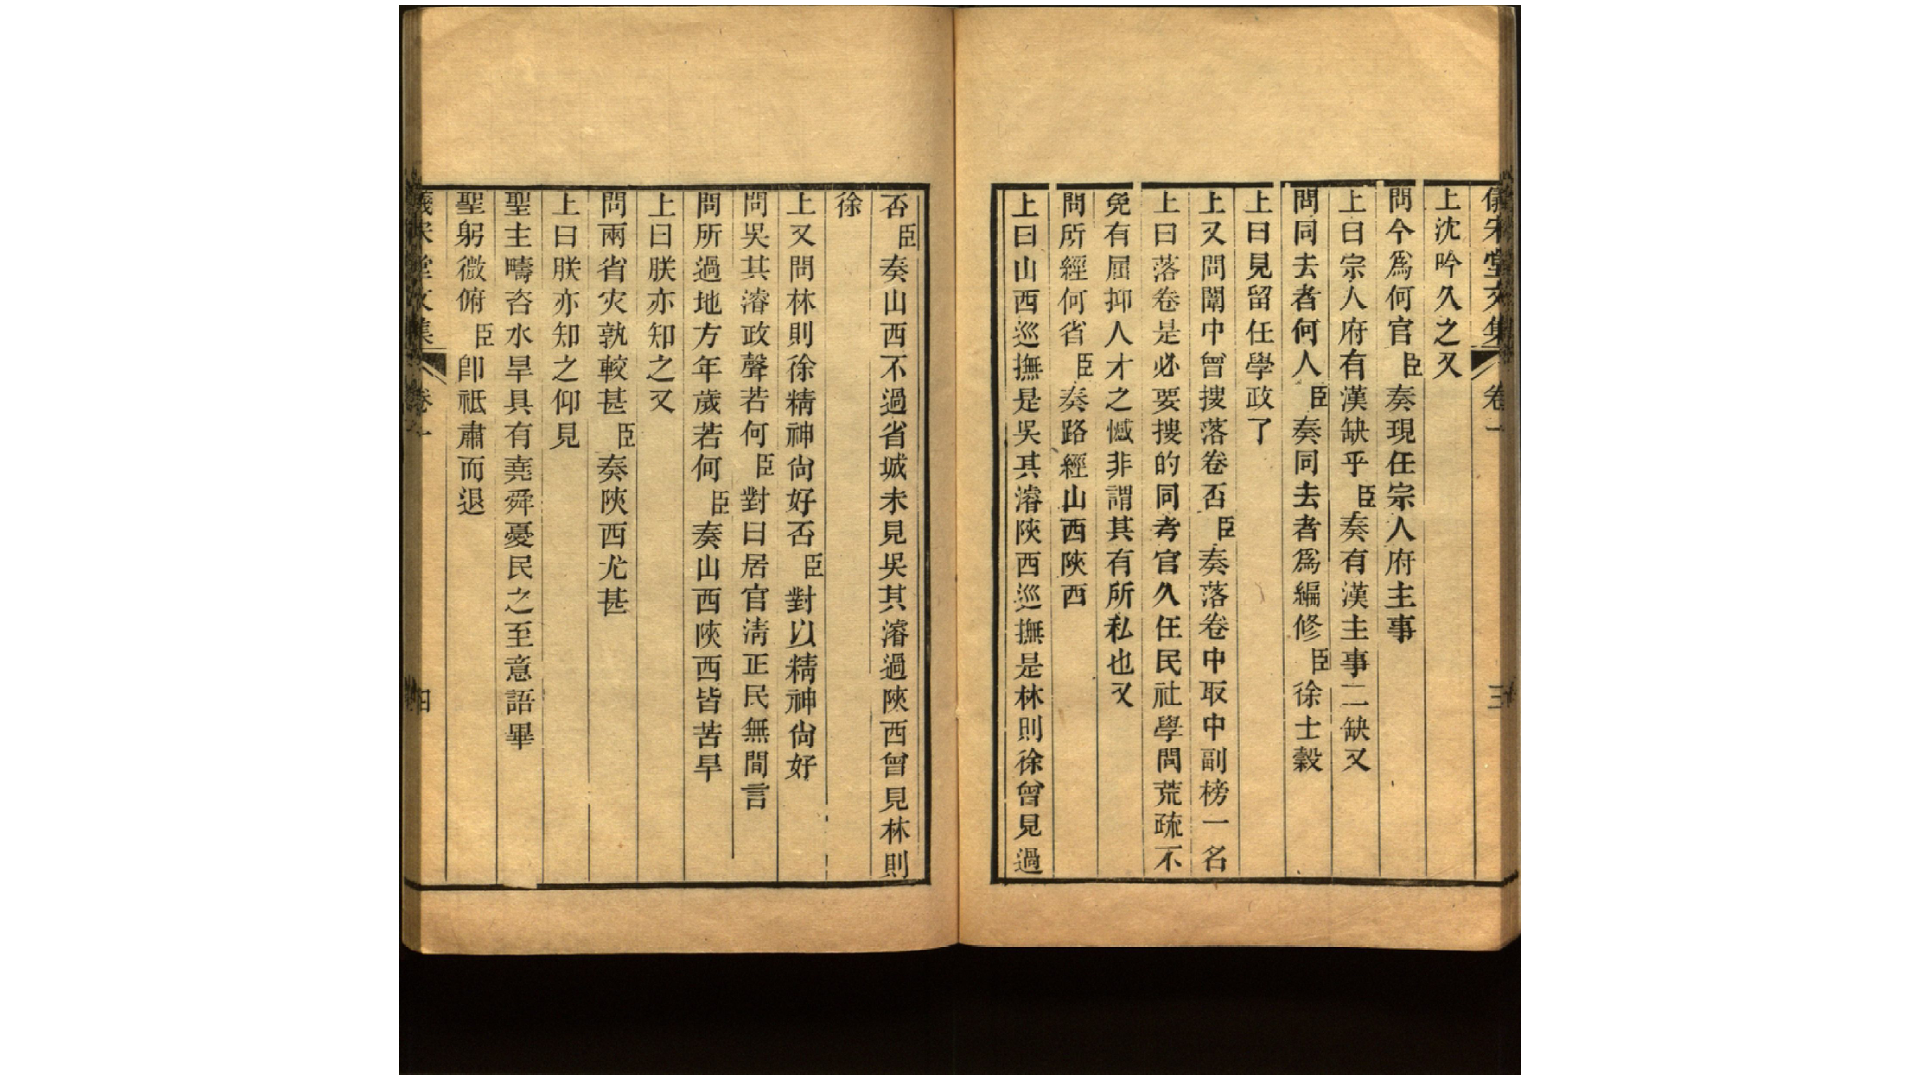 儀宋堂文集 卷一 三
上沈吟久之又
問今爲何官臣奏現任宗人府主事
上曰宗人府有漢缺乎臣奏有漢主事二缺又
問同去者何人臣奏同去者爲編修臣徐士穀
上曰見留任學政了
上又問闈中曾搜落卷否臣奏落卷中取中副榜一名
上曰落卷是必要搜的同考官久任民社學問荒疏不
免有屈抑人才之憾非謂其有所私也又
問所經何省臣奏路經山西陝西
上曰山西巡撫是吳其濬陝西巡撫是林則徐曾見過
否臣奏山西不過省城未見吳其濬過陝西曾見林則
徐
上又問林則徐精神尙好否臣對以精神尙好
問吳其濬政聲若何臣對曰居官淸正民無間言
問所過地方年歲若何臣奏山西陝西皆苦旱
上曰朕亦知之又
問兩省灾孰較甚臣奏陝西尤甚
上曰朕亦知之仰見
聖主疇咨水旱具有堯舜憂民之至意語畢
聖躬微俯臣卽祗肅而退
儀宋堂文集 卷一 四